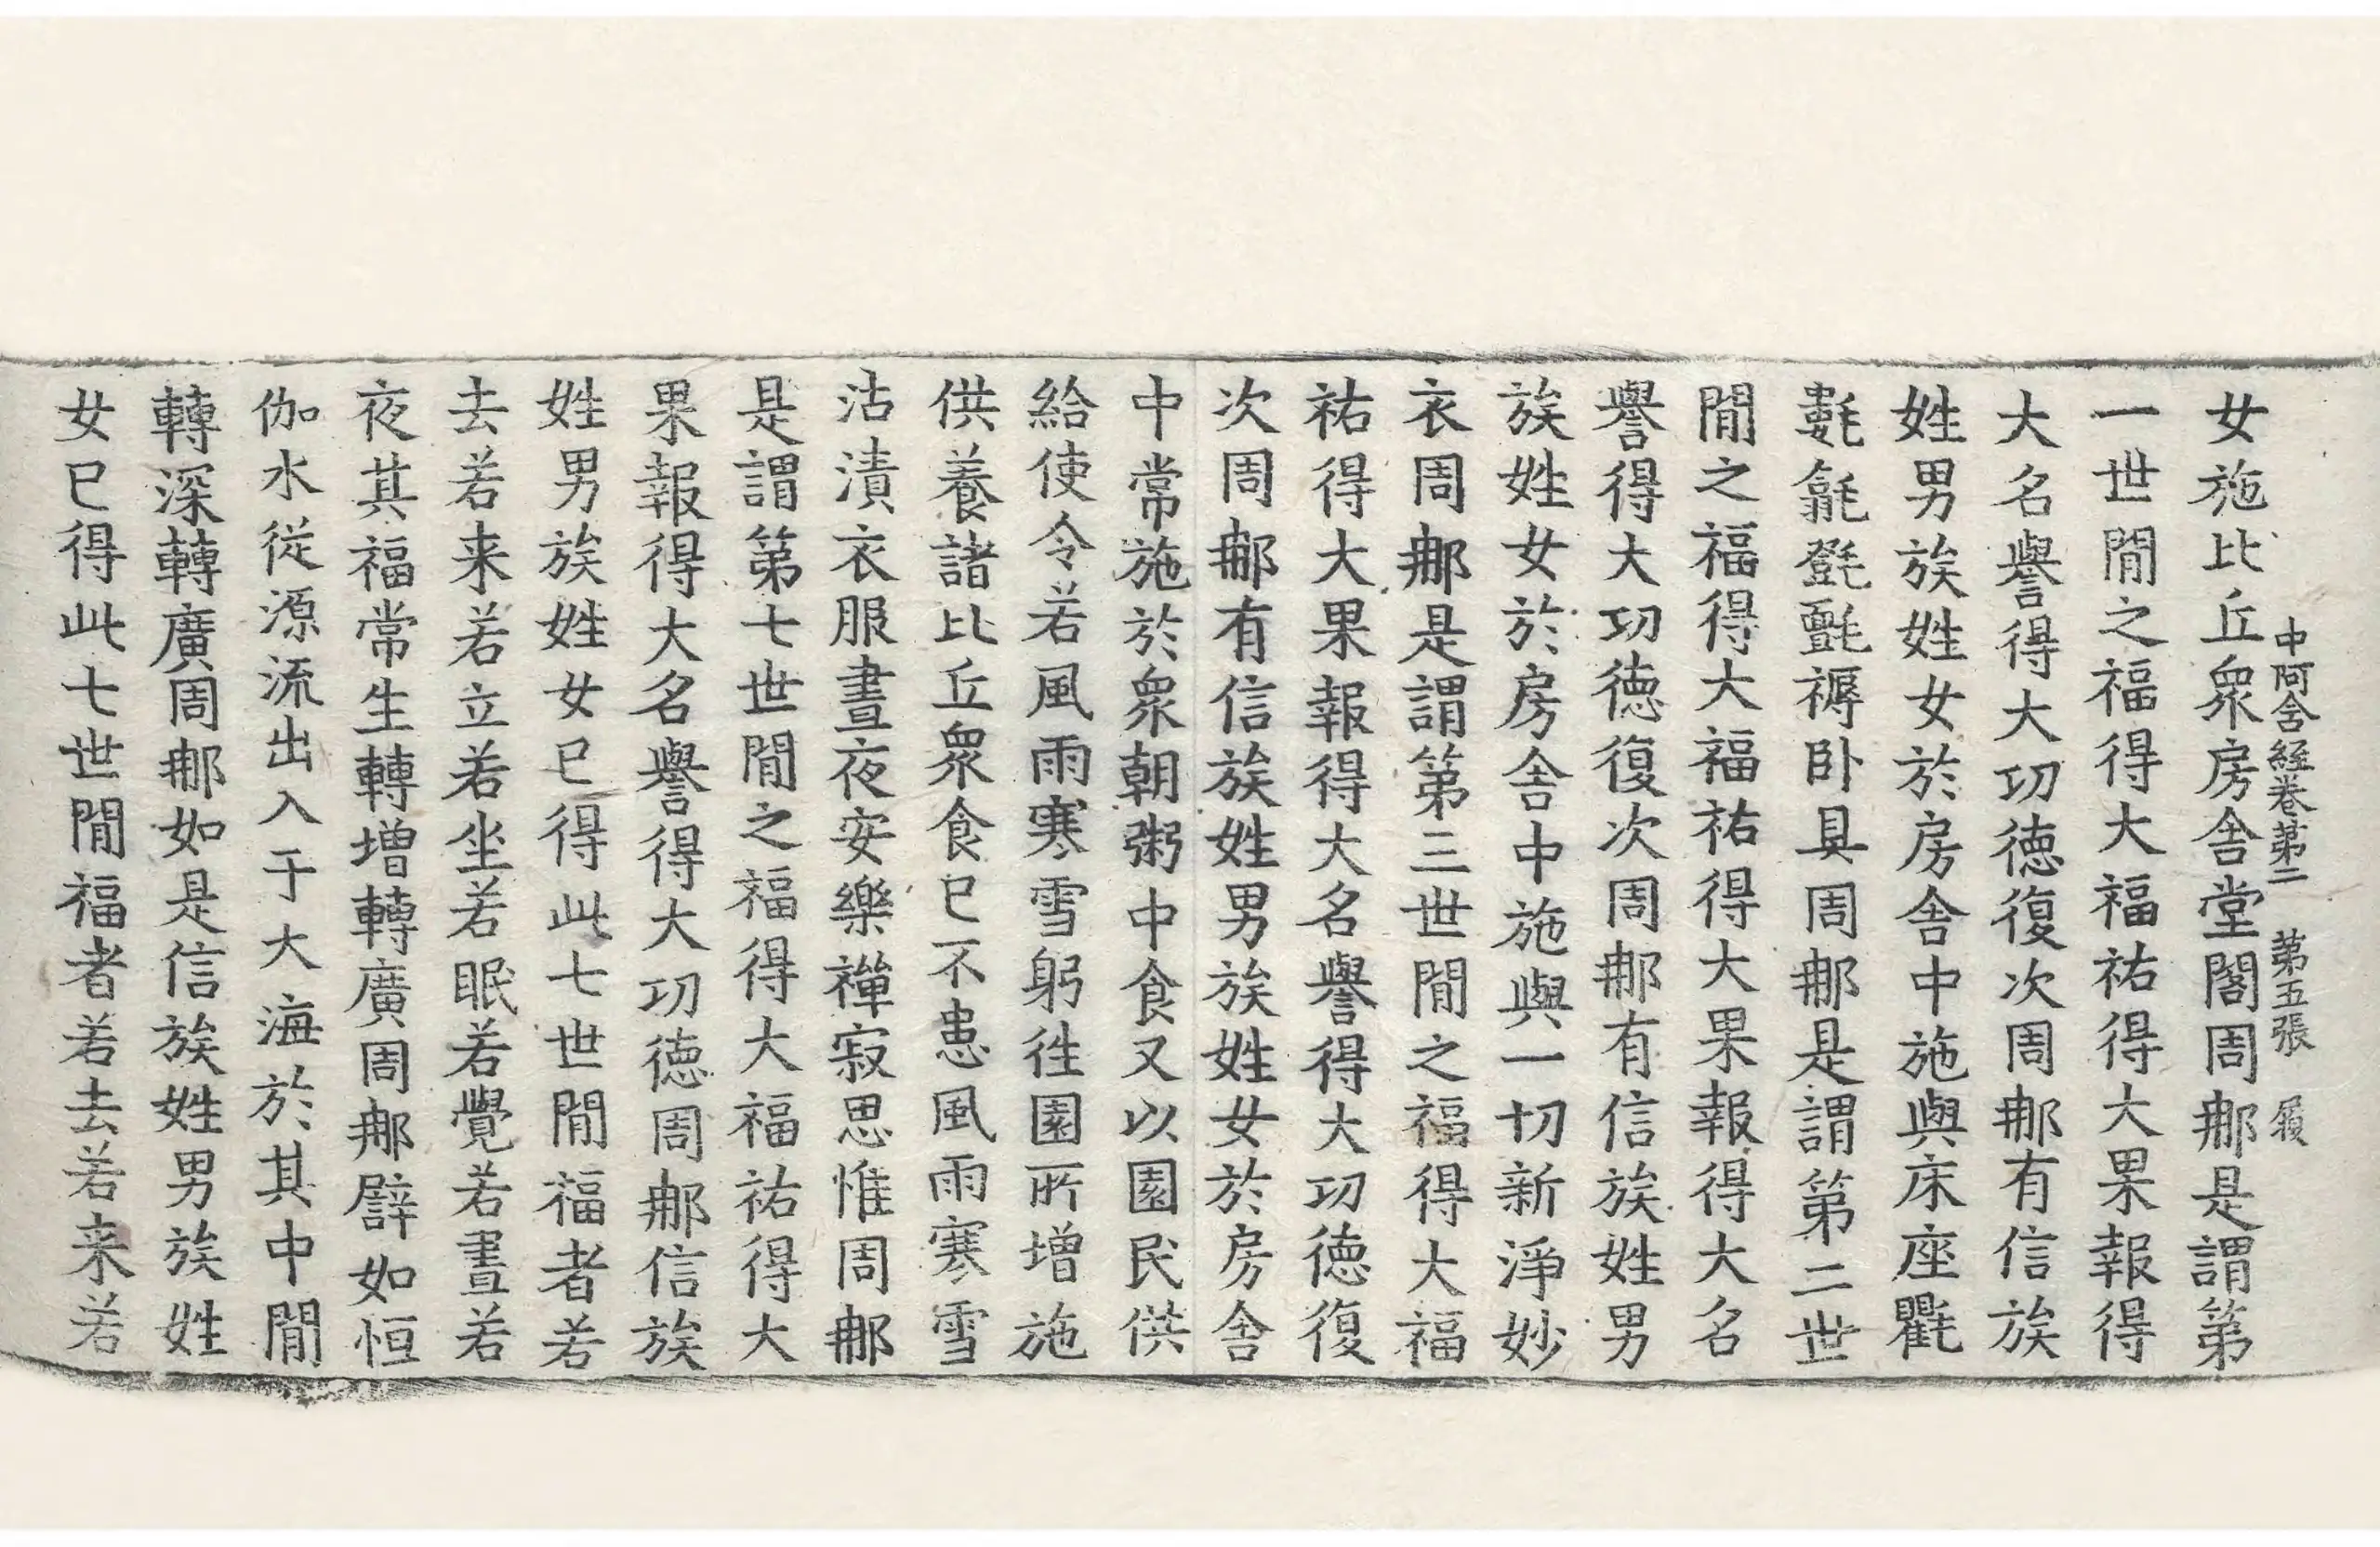 中阿含經卷第二 第五張 履
女施比丘衆房舍堂閣周那是謂第
一世閒之福得大福祐得大果報得
大名譽得大功德復次周那有信族
姓男族姓女於房舍中施與床座氍
氀毾㲪氈褥卧具周那是謂第二世
閒之福得大福祐得大果報得大名
譽得大功德復次周那有信族姓男
族姓女於房舍中施與一切新淨妙
衣周那是謂第三世閒之福得大福
祐得大果報得大名譽得大功德復
次周那有信族姓男族姓女於房舍
中常施於衆朝粥中食又以園民供
給使令若風雨寒雪躬往園所增施
供養諸比丘衆食已不患風雨寒雪
沾漬衣服晝夜安樂禪寂思惟周那
是謂第七世閒之福得大福祐得大
果報得大名譽得大功德周那信族
姓男族姓女已得此七世閒福者若
去若来若立若坐若眠若覺若晝若
夜其福常生轉增轉廣周那譬如恒
伽水從源流出入于大海於其中閒
轉深轉廣周那如是信族姓男族姓
女已得此七世閒福者若去若来若